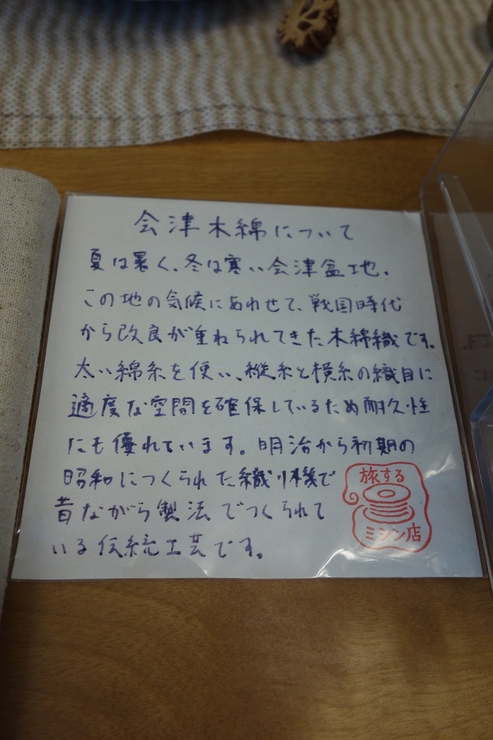 会津木綿について
夏は暑く、冬は寒い会津盆地。
この地の気候にあわせて、戦国時代
から改良が重ねられてきた木綿織です。
太い綿糸を使い、縦糸と横糸の織目に
適度な空間を確保しているため耐久性
にも優れています。明治から初期の
昭和につくられた織り機で
昔ながら製法でつくられて
いる伝統工芸です。
旅する
ミシン店